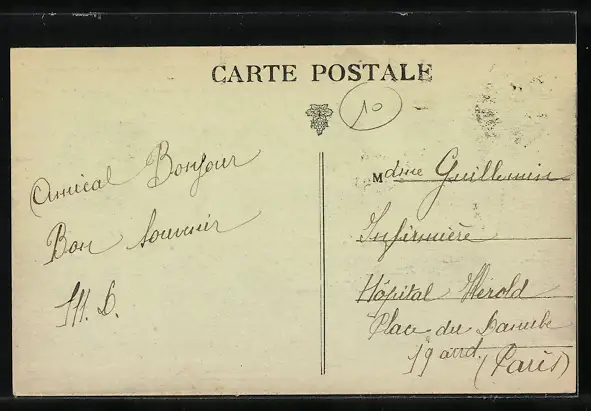 CARTE POSTALE
10
Amical Bonjour
Bon Souvenir
M. D.
Mdme Guillemin
Infirmière
Hôpital Hérold
Place du Danube
19 arrd. (Paris)